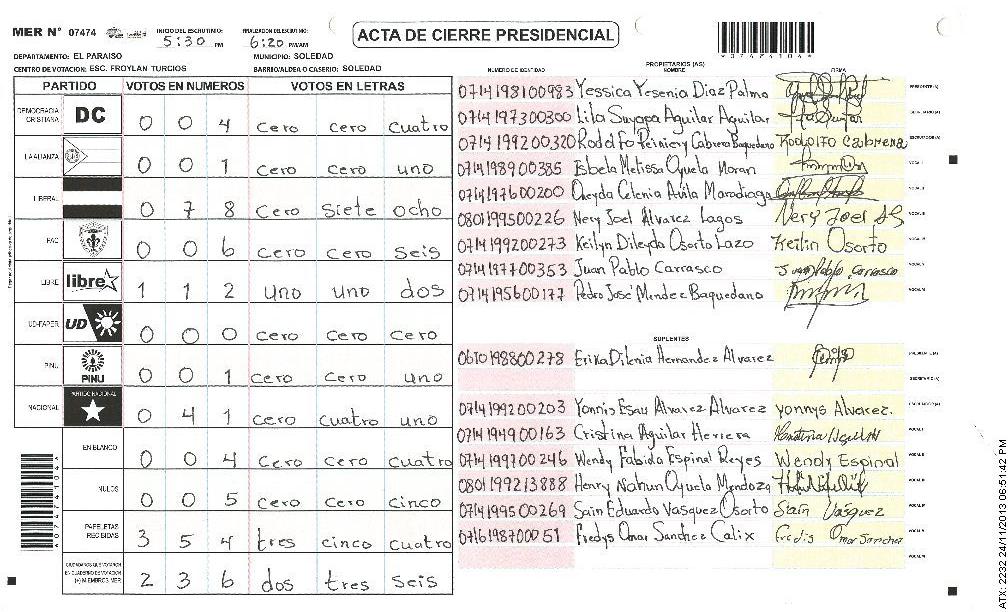 MER N° 07474 INICIO DEL ESCRUTINIO: 5:30 PM FINALIZACION DEL ESCRUTINIO: 6:20 PM/AM
ACTA DE CIERRE PRESIDENCIAL
DEPARTAMENTO: EL PARAISO MUNICIPIO: SOLEDAD
CENTRO DE VOTACION: ESC. FROYLAN TURCIOS BARRIO/ALDEA O CASERIO: SOLEDAD
PARTIDO VOTOS EN NUMEROS VOTOS EN LETRAS
DEMOCRACIA CRISTIANA DC 0 0 4 cero cero cuatro
LA ALIANZA 0 0 1 cero cero uno
LIBERAL 0 7 8 cero siete ocho
PAC 0 0 6 cero cero seis
LIBRE libre 1 1 2 uno uno dos
UD-FAPER UD 0 0 0 cero cero cero
PINU PINU 0 0 1 cero cero uno
NACIONAL PARTIDO NACIONAL 0 4 1 cero cuatro uno
EN BLANCO 0 0 4 cero cero cuatro
NULOS 0 0 5 cero cero cinco
PAPELETAS RECIBIDAS 3 5 4 tres cinco cuatro
CIUDADANOS QUE VOTARON EN CUADERNO DE VOTACION (+) MIEMBROS MER 2 3 6 dos tres seis
PROPIETARIOS (AS)
NUMERO DE IDENTIDAD NOMBRE FIRMA
0714198100983 Yessica Yesenia Diaz Palma PRESIDENTE (A)
0714197300300 Lila Suyapa Aguilar Aguilar SECRETARIO (A)
0714199200320 Rodolfo Reiniery Cabrera Baquedano Rodolfo Cabrera ESCRUTADOR (A)
0714198900385 Isbela Melissa Oyuela Moran
0714197600200 Cheyda Celenia Avila Maradiaga
0801199500226 Nery Joel Alvarez Lagos Nery Joel
0714199200273 Keilyn Dileyda Osorto Lazo Keilin Osorto
0714197700353 Juan Pablo Carrasco Juan Pablo Carrasco
0714195600177 Pedro José Mendez Baquedano
SUPLENTES
0610198800278 Erika Dilenia Hernandez Alvarez PRESIDENTE (A)
SECRETARIO (A)
0714199200203 Yonnis Esau Alvarez Alvarez Yonnys Alvarez. ESCRUTADOR (A)
0714194900163 Cristina Aguilar Herrera
0714199700246 Wendy Fabido Espinal Reyes Wendy Espinal
0801199213888 Henry Nahun Oyuela Mendoza
0714199500269 Sain Eduardo Vasquez Osorto Sain Vasquez
0716198700051 Fredys Omar Sanchez Calix Fredis Omar Sanchez
ATX: 2232 24/11/2013 06:51:42 PM